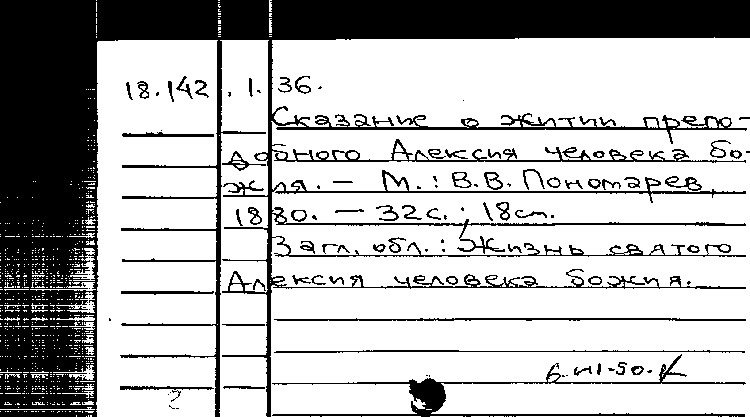 18.142.1.36.
Сказание о житии препо-
добного Алексия человека бо-
жия. — М.: В.В. Пономарев,
1880. — 32с.; 18см.
Загл. обл.: Жизнь святого
Алексия человека божия.